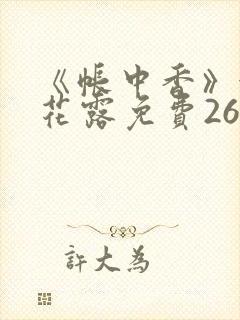 《帐中香》
花露免費26
許大為